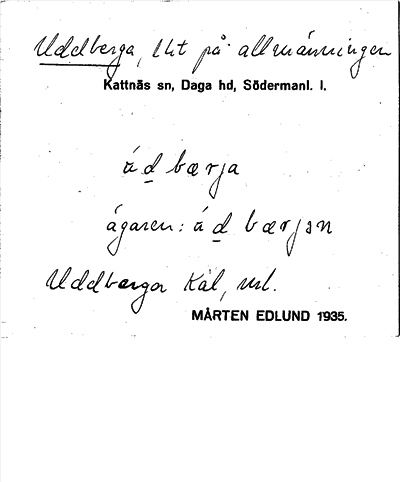 Uddberga, lht på allmänningen
Kattnäs sn, Daga hd, Södermanl. l.
á d bærja
ägaren: á d bærjən
Uddberga Kal,
MÅRTEN EDLUND 1935.